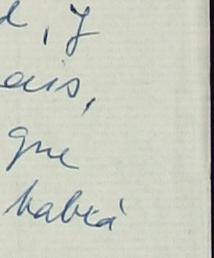 , y
ais,
que
habrá